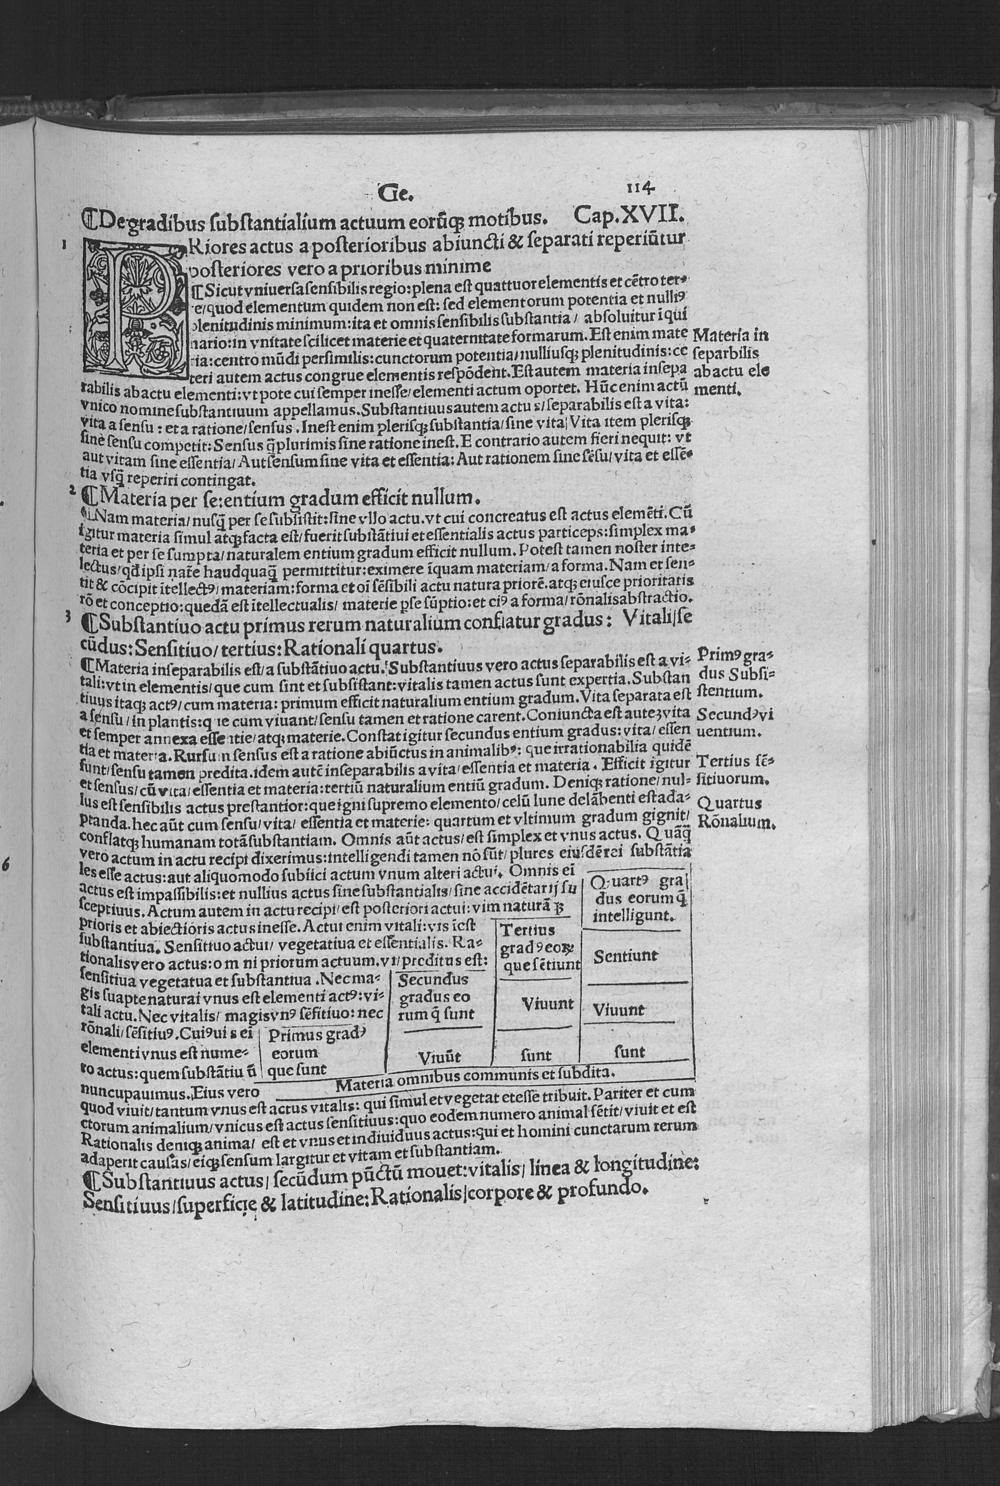 Ge.
114
¶De gradibus substantialium actuum eorūq̃ʒ motibus. Cap.XVII.
1
PRiores actus a posterioribus abiuncti & separati reperiūtur
posteriores vero a prioribus minime
¶Sicut vniuersa sensibilis regio: plena est quattuor elementis et cētro ter⸗
re/quod elementum quidem non est: sed elementorum potentia et nulliꝰ
plenitudinis minimum: ita et omnis sensibilis substantia/ absoluitur ī qui
nario: in vnitate scilicet materie et quaternitate formarum. Est enim mate
ria: centro mūdi persimilis: cunctorum potentia/nulliusqꝫ plenitudinis: ce
teri autem actus congrue elementis respōdent. Est autem materia insepa
rabilis ab actu elementi: vt pote cui semper inesse/ elementi actum oportet. Hūc enim actū
vnico nomine substantiuum appellamus. Substantiuus autem actus/separabilis est a vita:
vita a sensu: et a ratione/sensus. Inest enim plerisqꝫ substantia/ sine vita/ Vita item plerisqꝫ
sine sensu competit: Sensus q̄plurimis sine ratione inest. E contrario autem fieri nequit: vt
aut vitam sine essentia/ Aut sensum sine vita et essentia: Aut rationem sine sēsu/vita et essē⸗
tia vsq̄ reperiri contingat.
Materia in
separbilis
ab actu ele
menti.
2
¶Materia per se: entium gradum efficit nullum.
¶Nam materia/ nusq̄ per se subsistit: sine vllo actu. vt cui concreatus est actus elemēti. Cū
igitur materia simul atqꝫ facta est/ fuerit substātiui et essentialis actus particeps: simplex ma⸗
teria et per se sumpta/ naturalem entium gradum efficit nullum. Potest tamen noster inte⸗
lectus/ qd̄ ipsi natēe haudquaq̄ permittitur: eximere īquam materiam/ a forma. Nam et sen⸗
tit & cōcipit ītellectꝰ/ materiam: forma et oī sēsibili actu natura priorē. atqꝫ eiusce prioritatis
rō et conceptio: quedā est ītellectualis/ materie pse sūptio: et eiꝰ a forma/ rōnalis abstractio.
3
¶Substantiuo actu primus rerum naturalium conflatur gradus: Vitali/se
cūdus: Sensitiuo/ tertius: Rationali quartus.
¶Materia inseparabilis est/ a substātiuo actu. Substantiuus vero actus separabilis est a vi⸗
tali: vt in elementis/ que cum sint et subsistant: vitalis tamen actus sunt expertia. Substan
tiuus itaqꝫ actꝰ/ cum materia: primum efficit naturalium entium gradum. Vita separata est
a sensu/ in plantis: que cum viuant/ sensu tamen et ratione carent. Coniuncta est autē vita
et semper annexa essentie/ atqꝫ materie. Constat igitur secundus entium gradus: vita/ essen
tia et materia. Rursum sensus est a ratione abiūctus in animalibꝰ: que irrationabilia quidē
sunt/ sensu tamen predita. idem autē inseparabilis a vita/ essentia et materia. Efficit igitur
et sensus/ cū vita/ essentia et materia: tertiū naturalium entiū gradum. Deniqꝫ ratione/ nul⸗
lus est sensibilis actus prestantior: que igni supremo elemento/ celū lune delābenti est ada⸗
ptanda. hec aūt cum sensu/ vita/ essentia et materie: quartum et vltimum gradum gignit/
conflatqꝫ humanam totā substantiam. Omnis aūt actus/ est simplex et vnus actus. Quāq̄
vero actum in actu recipi dixerimus: intelligendi tamen nō sūt/ plures eiusdē rei substātia
les esse actus: aut aliquo modo subiici actum vnum alteri actui. Omnis ei
actus est impassibilis: et nullius actus sine substantialis/ sine accidētarij su
sceptiuus. Actum autem in actu recipi/ est posteriori actui: vim naturā qꝫ
prioris et abiectioris actus inesse. Actui enim vitali: vis iest
substantiua. Sensitiuo actui/ vegetatiua et essentialis. Ra⸗
tionalis vero actus: omni priorum actuum. vi/ preditus est:
sensitiua vegetatua et substantiua. Nec ma⸗
gis suapte naturai vnus est elementi actꝰ: vi⸗
tali actu. Nec vitalis/ magis vnꝰ sēsitiuo: nec
rōnali/ sēsitiuꝰ. Cuiꝰuis ei
elementi vnus est nume⸗
ro actus: quem substātiu ū
nuncupauimus. Eius vero
quod viuit/ tantum vnus est actus vitalis: qui simul et vegetat et esse tribuit. Pariter et cum
ctorum animalium/ vnicus est actus sensitiuus: quo eodem numero animal sētit/ viuit et est
Rationalis deniqꝫ anima/ est et vnus et indiuiduus actus: qui et homini cunctarum rerum
adaperit causas/ eiqꝫ sensum largitur et vitam et substantiam.
Primꝰ gra⸗
dus Subsi⸗
stentium.
Secundꝰ vi
uentium.
Tertius sē⸗
sitiuorum.
Quartus
Rōnalium.
Quartꝰ gra
dus eorum q̄
intelligunt.
Sentiunt
Viuunt
sunt
Tertius
gradꝰ eoꝝ
que sētiunt
Viuunt
sunt
Secundus
gradus eo
rum q̄ sunt
Viuūt
Primus gradꝰ
eorum
que sunt
Materia omnibus communis et subdita.
¶Substantiuus actus/ secūdum pūctū mouet: vitalis/ linea & longitudine:
Sensitiuus/superficie & latitudine: Rationalis/corpore & profundo.
6